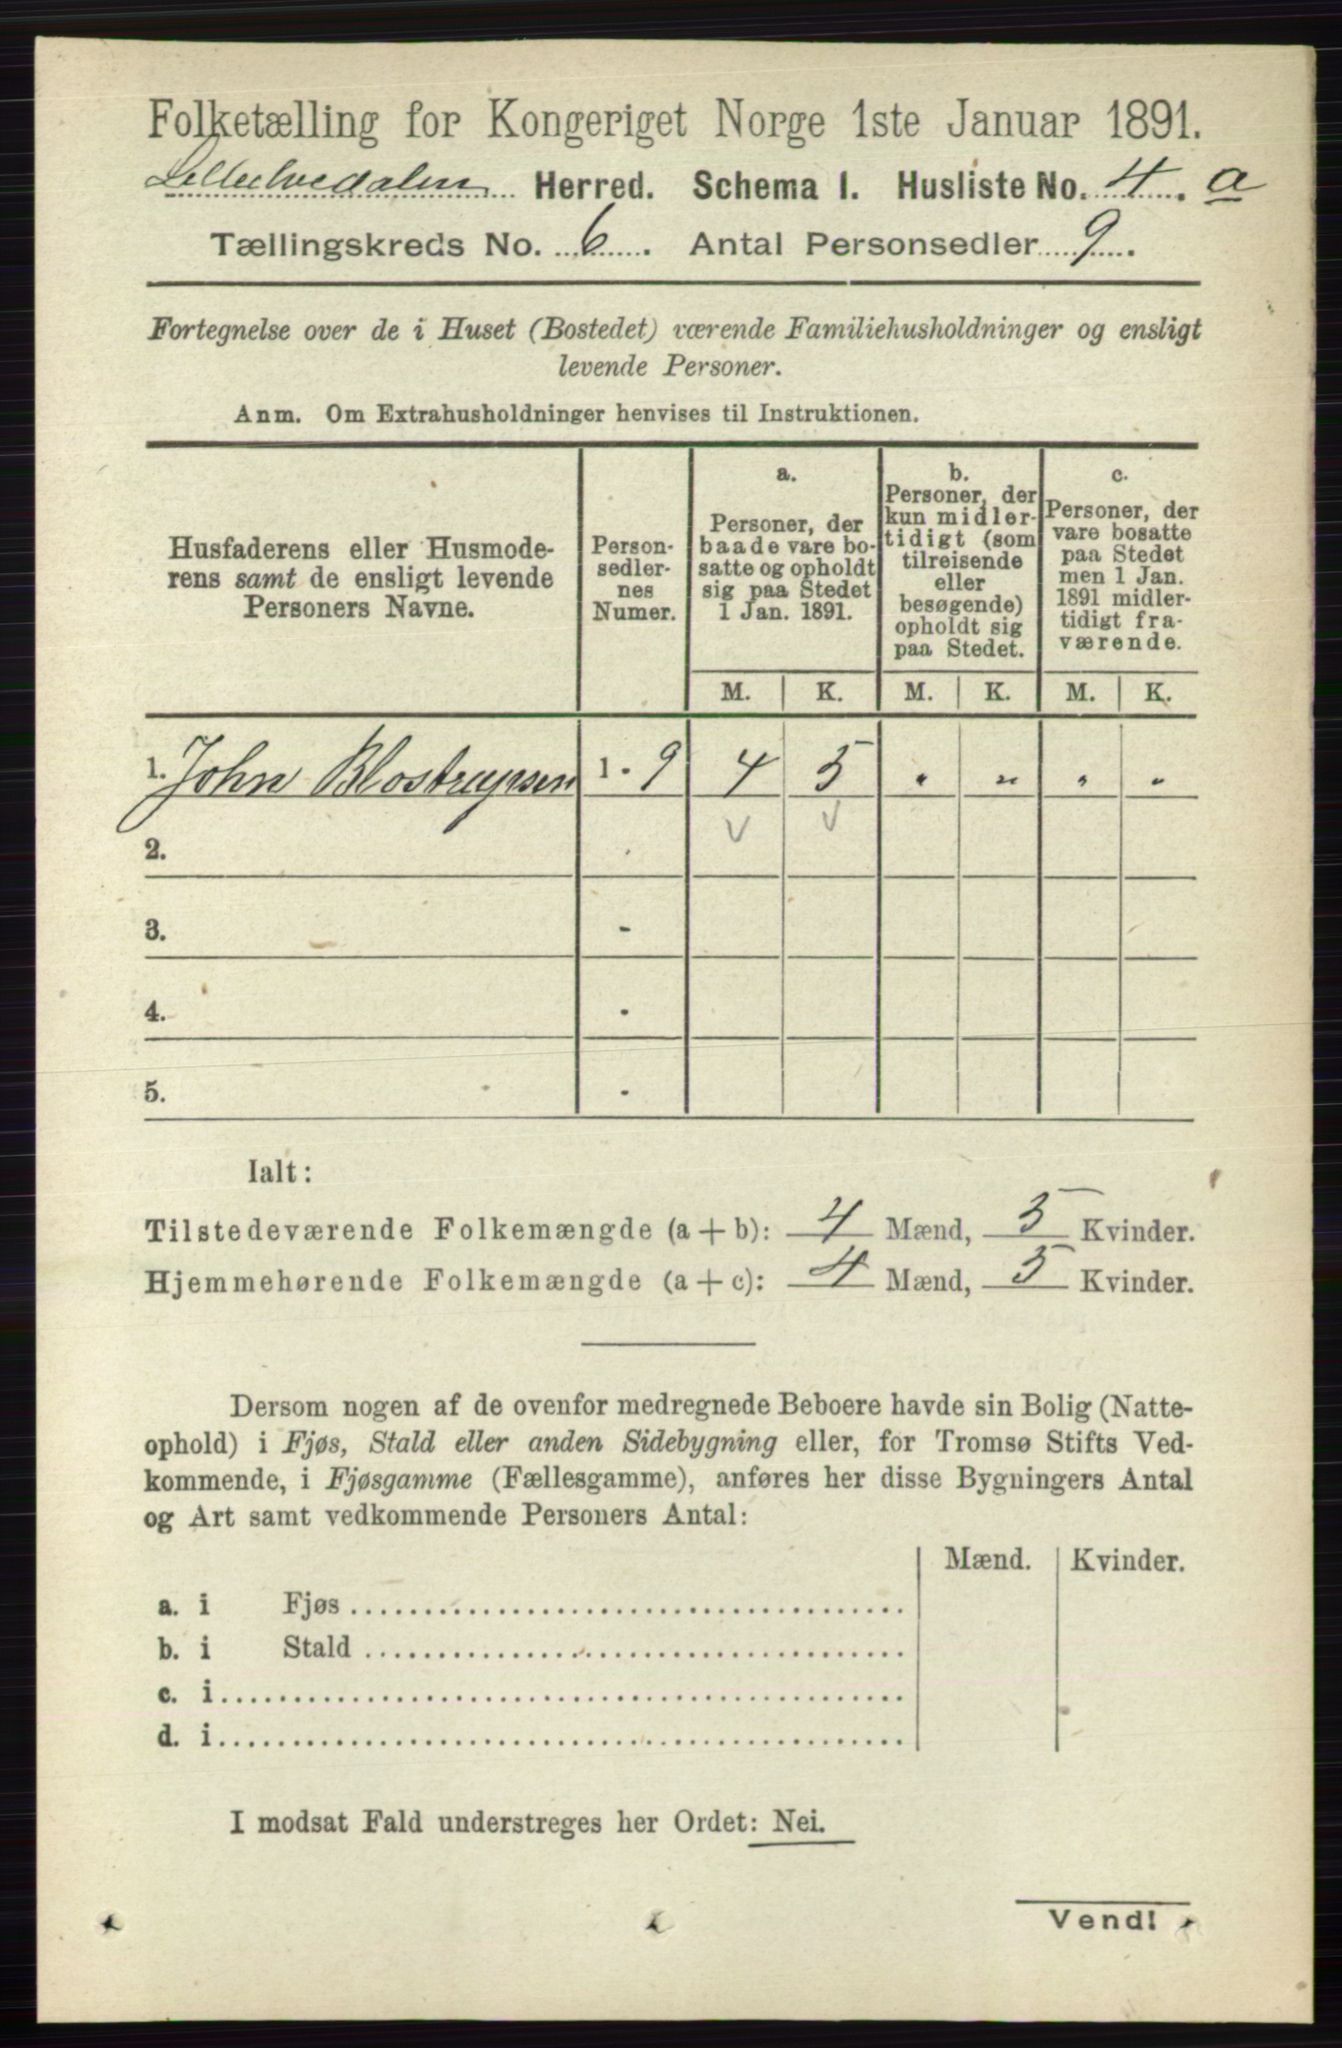 Folketælling for Kongeriget Norge 1ste Januar 1891.
Lilleelvedalen Herred. Schema I. Husliste No. 4. a
Tællingskreds No. 6. Antal Personsedler 9.
Fortegnelse over de i Huset (Bostedet) værende Familiehusholdninger og ensligt
levende Personer.
Anm. Om Extrahusholdninger henvises til Instruktionen.
Husfaderens eller Husmode-
rens samt de ensligt levende
Personers Navne.
Person-
sedler-
nes
Numer.
a.
Personer, der
baade vare bo-
satte og opholdt
sig paa Stedet
1 Jan. 1891.
b.
Personer, der
kun midler-
tidigt (som
tilreisende
eller
besøgende)
opholdt sig
paa Stedet.
c.
Personer, der
vare bosatte
paa Stedet
men 1 Jan.
1891 midler-
tidigt fra-
værende.
M. K. M. K. M. K.
1. John Blostrupsen 1 - 9 4 5 " " " "
2. -
3. -
4. -
5. -
Ialt:
Tilstedeværende Folkemængde (a + b): 4 Mænd, 5 Kvinder.
Hjemmehørende Folkemængde (a + c): 4 Mænd, 5 Kvinder.
Dersom nogen af de ovenfor medregnede Beboere havde sin Bolig (Natte-
ophold) i Fjøs, Stald eller anden Sidebygning eller, for Tromsø Stifts Ved-
kommende, i Fjøsgamme (Fællesgamme), anføres her disse Bygningers Antal
og Art samt vedkommende Personers Antal:
Mænd. Kvinder.
a. i Fjøs
b. i Stald
c. i
d. i
I modsat Fald understreges her Ordet: Nei.
Vend!